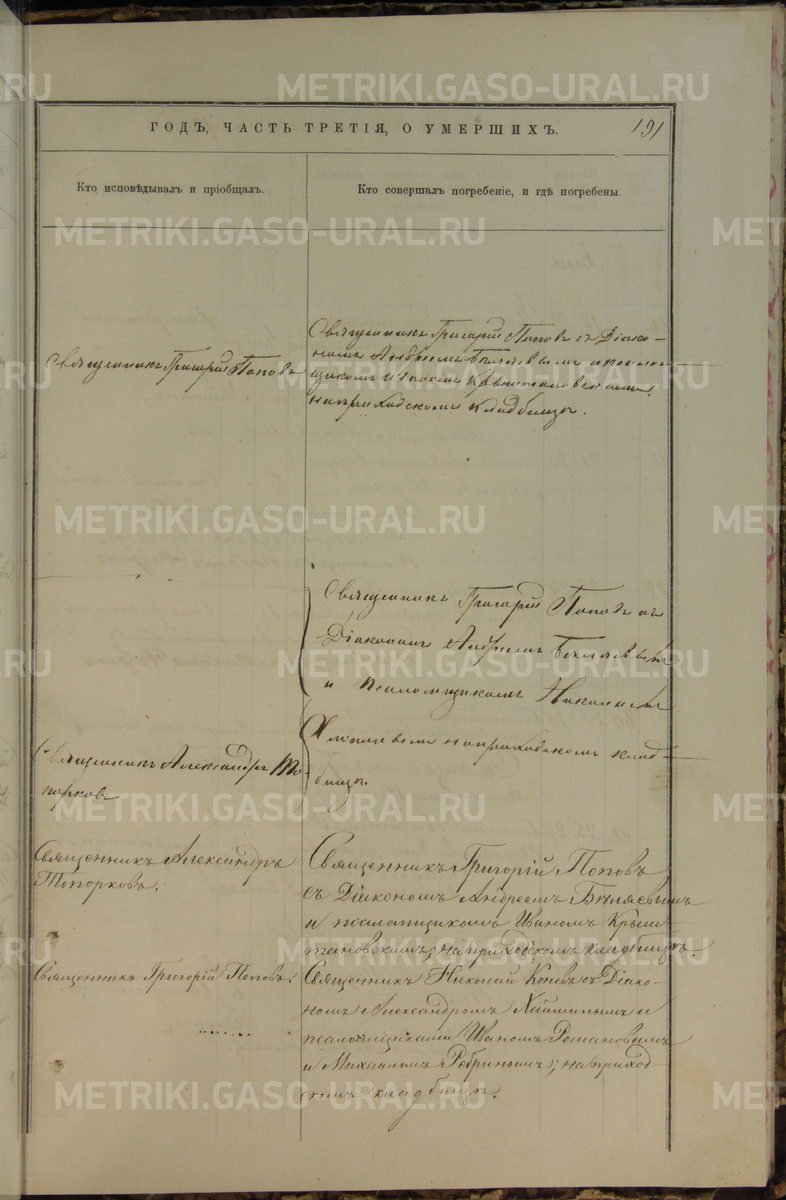 ГОДЪ, ЧАСТЬ ТРЕТІЯ, О УМЕРШИХЪ.
191
Кто исповѣдывалъ и пріобщалъ.
Кто совершалъ погребеніе, и гдѣ погребены.
Священникъ Григорій Поповъ
Священникъ Григорій Поповъ съ Діако-
номъ Андреемъ Бѣляевымъ и псалом-
щикомъ Иваномъ Крыштановскимъ
на приходскомъ кладбищѣ.
Священникъ Григорій Поповъ съ
Діакономъ Андреемъ Бѣляевымъ
и псаломщикомъ Николаемъ
на приходскомъ клад-
бищѣ.
Священникъ Александръ То-
порковъ
Священникъ Александръ
Топорковъ.
Священникъ Григорій Поповъ
съ Діакономъ Андреемъ Бѣляевымъ
и псаломщикомъ Иваномъ Крыш-
тановскимъ, на приходскомъ кладбищѣ.
Священникъ Григорій Поповъ.
Священникъ Николай Коневъ съ Діако-
номъ Александромъ и
псаломщиками Иваномъ Романовымъ
и Михаиломъ Ребринымъ; на приход-
скомъ кладбищѣ.
METRIKI.GASO-URAL.RU